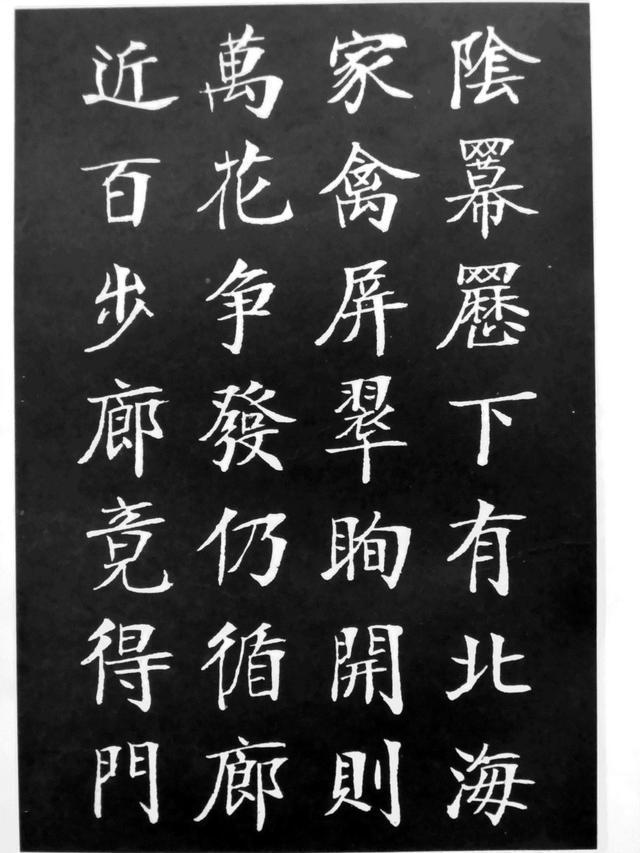 陰羃㒿下有北海
家禽屏翠眴開則
萬花争發仍循廊
近百步廊竟得門